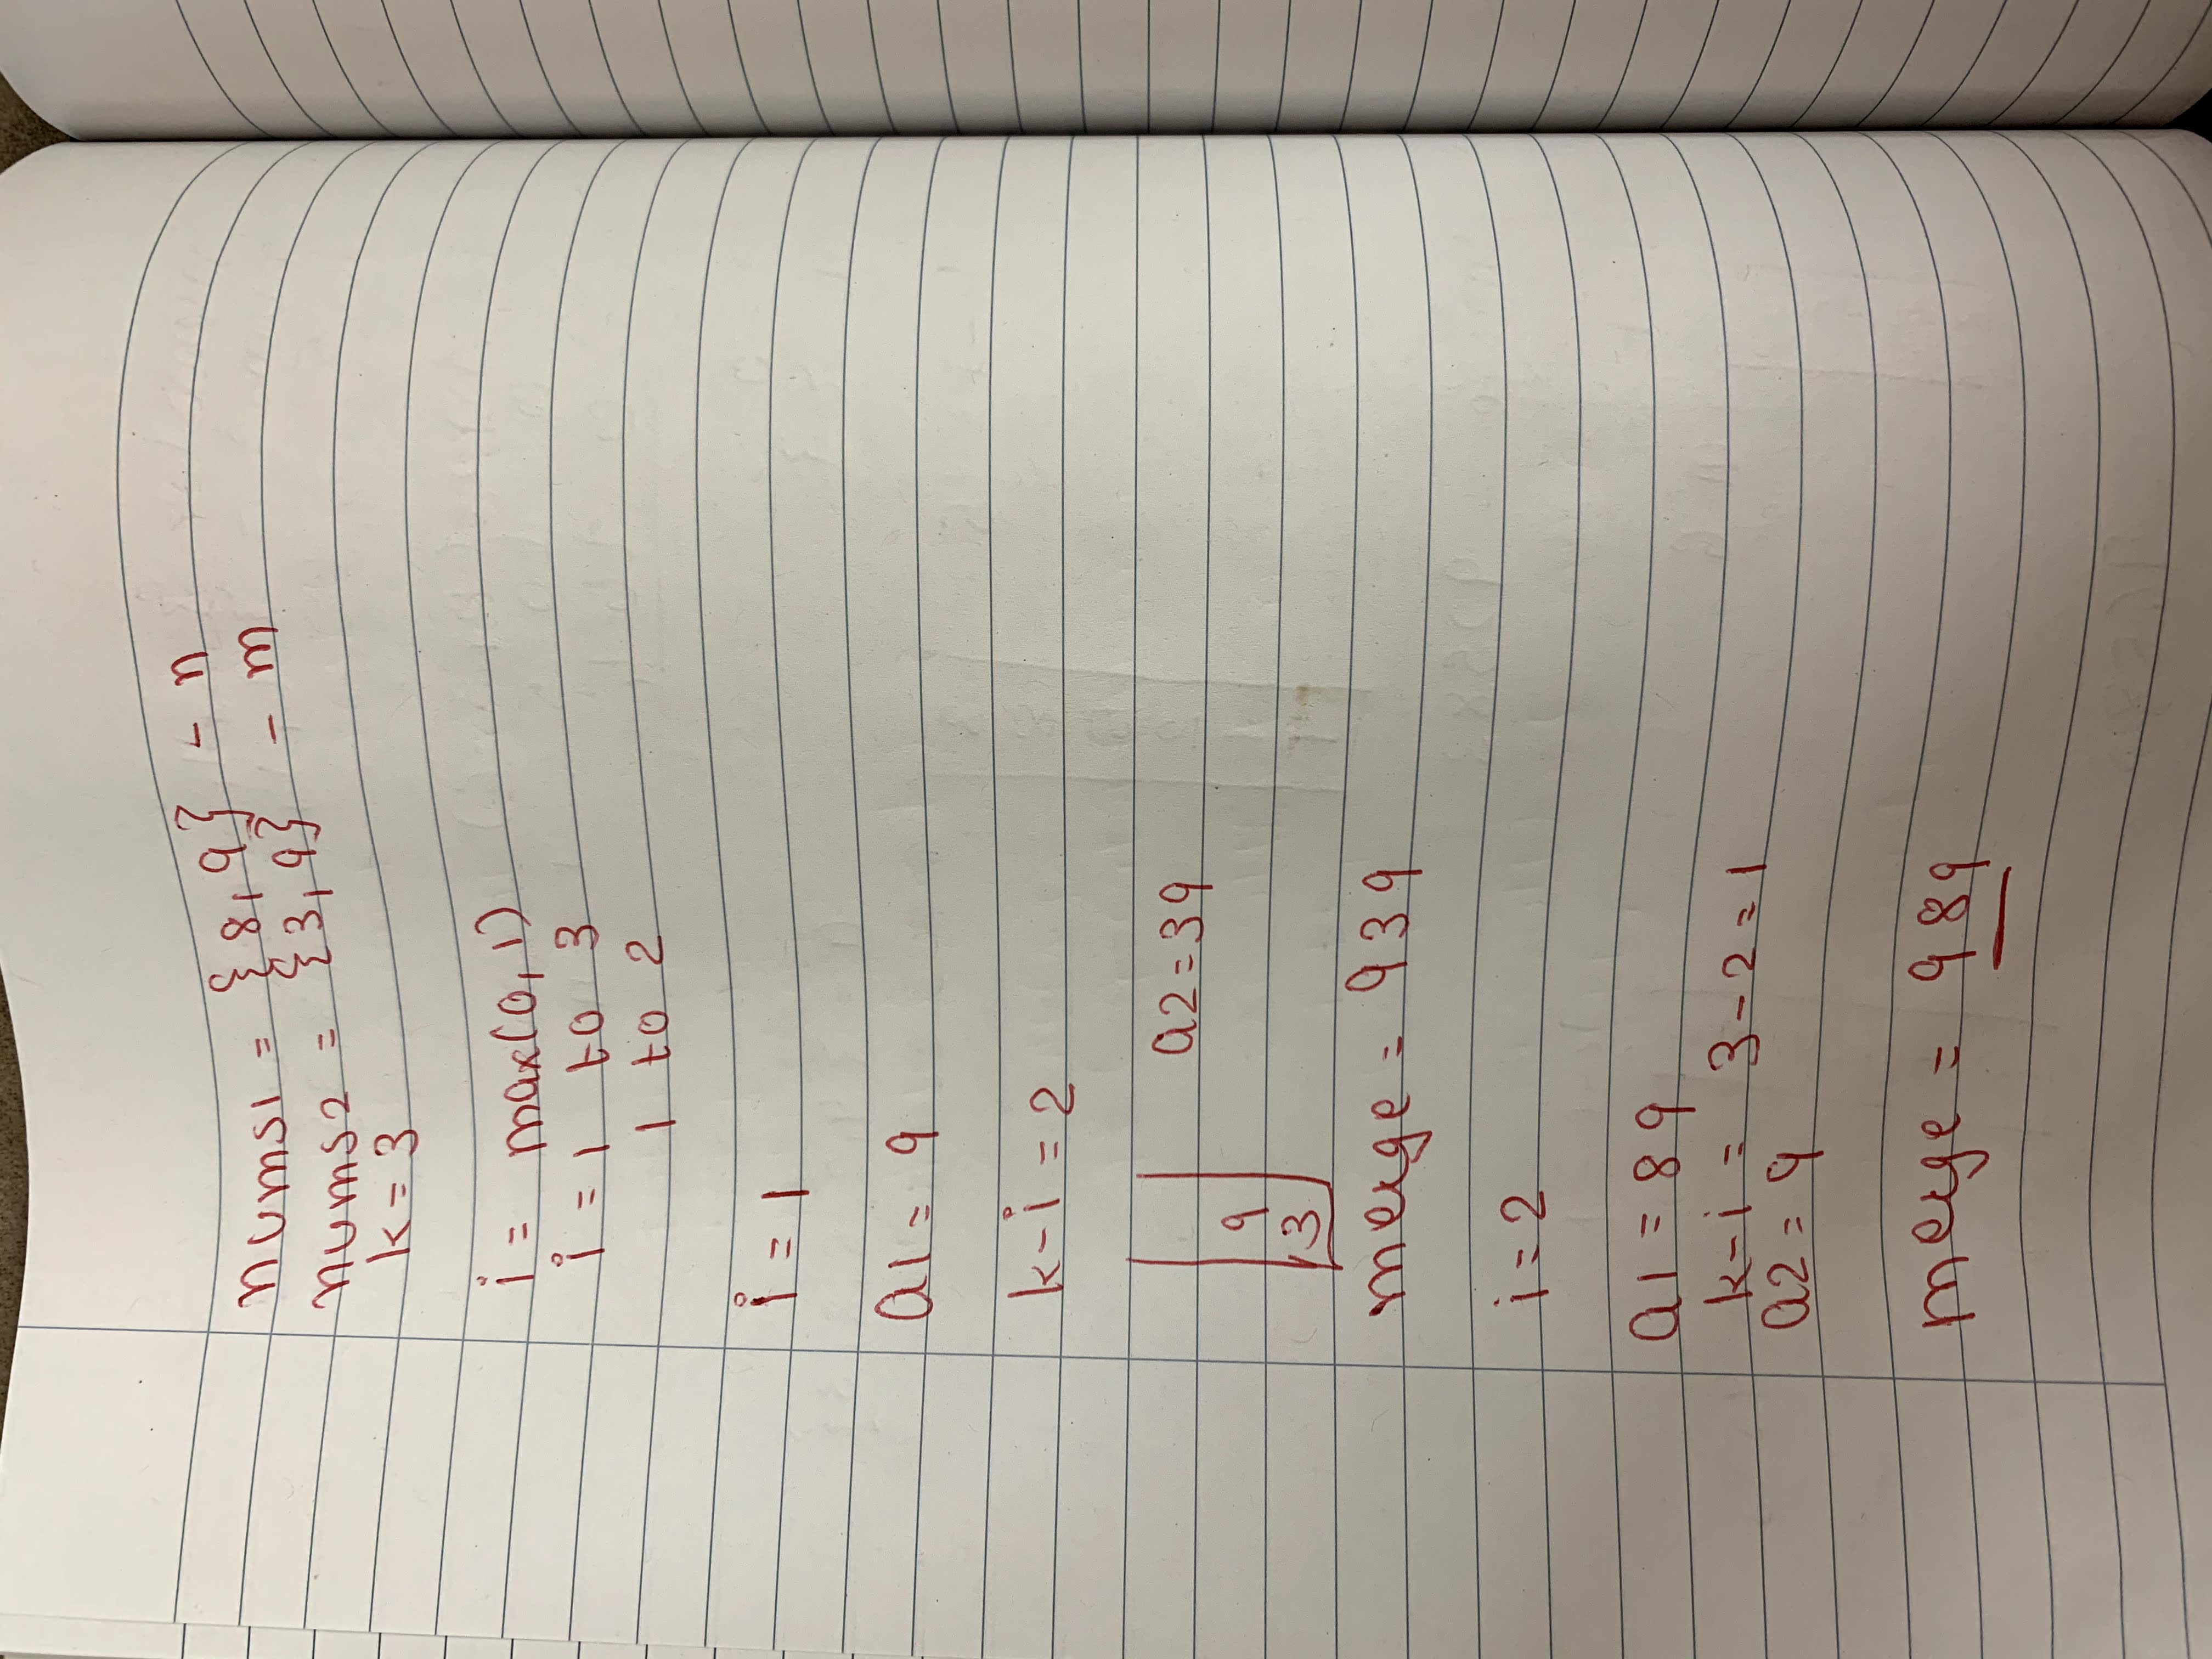 nums1 = {8, 9} - n
nums2 = {3, 9} - m
k = 3
i = max(0, 1)
i = 1 to 3
1 to 2
i = 1
a1 = 9
k-i = 2
a2 = 39
9
3
merge = 939
i = 2
a1 = 89
k-i = 3-2 = 1
a2 = 9
merge = 989